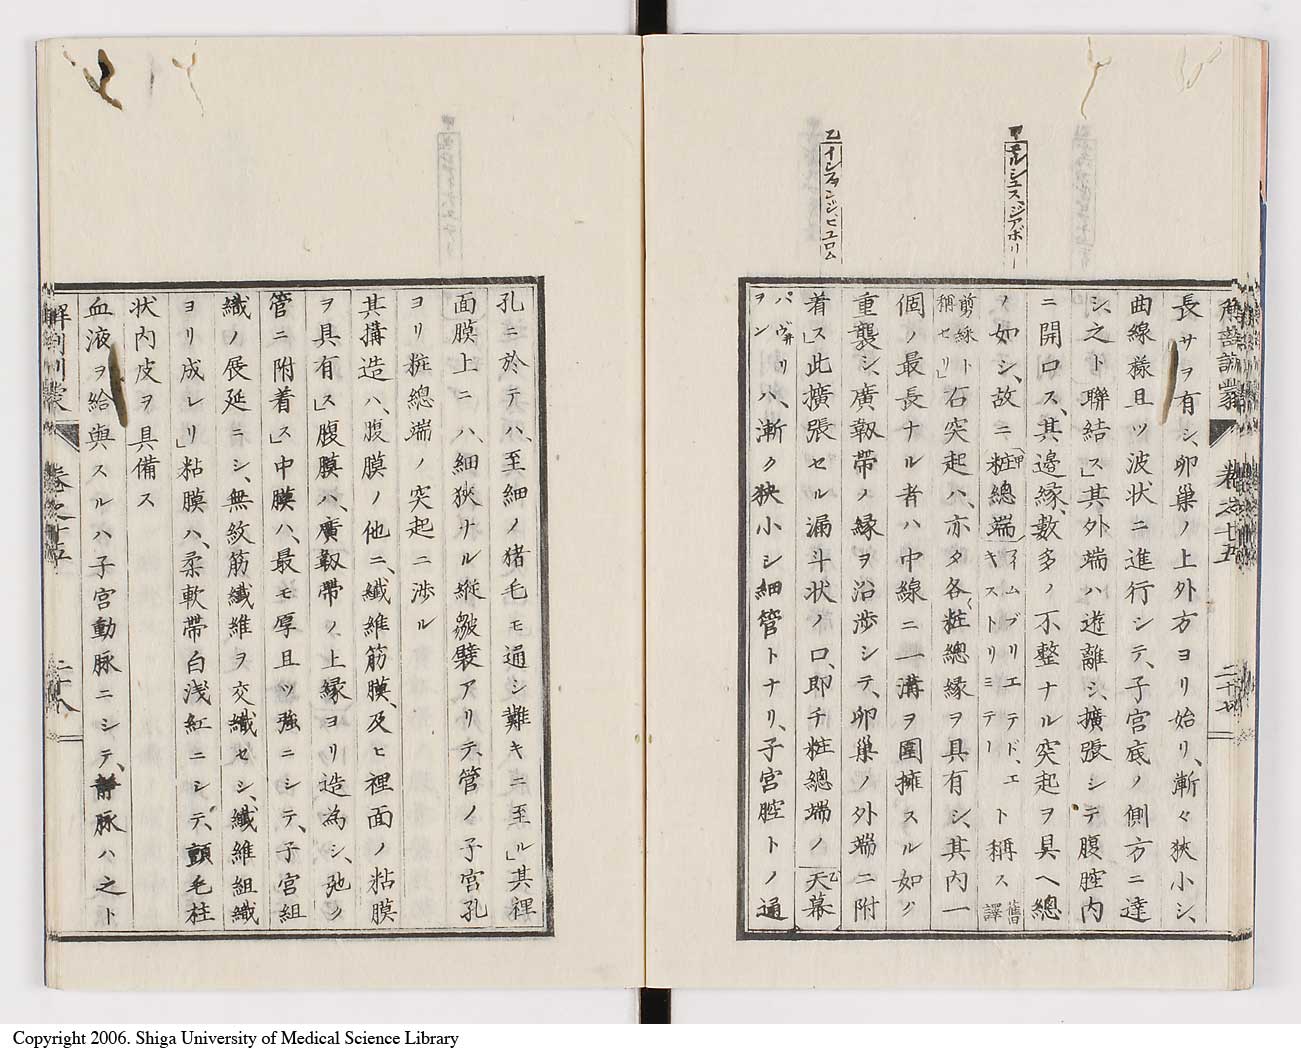 甲モルシュス、ジアボリー
乙インファンジ、ビュロム
解剖訓蒙 卷之十五 二十七
長サヲ有シ、卵巢ノ上外方ヨリ始リ、漸々狹小シ、
曲線樣且ツ波狀ニ進行シテ、子宮底ノ側方ニ達
シ、之ト聯結ス」其外端ハ遊離シ、擴張シテ腹腔内
ニ開口ス、其邊緣、數多ノ不整ナル突起ヲ具ヘ總
ノ如シ、故ニ甲粧總端フイムブリエテド、エキストリミテート稱ス舊譯
剪綵ト稱セリ」石突起ハ、亦タ各〻粧總緣ヲ具有シ、其内一
個ノ最長ナル者ハ中線ニ一溝ヲ圍擁スル如ク
重襲シ、廣靱帶ノ緣ヲ沿渉シテ、卵巢ノ外端ニ附
着ス」此擴張セル漏斗狀ノ口、即チ粧總端ノ乙天幕
パヴ井リヲンハ、漸ク狹小シ細管トナリ、子宮腔トノ通
孔ニ於テハ、至細ノ猪毛モ通シ難キニ至ル」其裡
面膜上ニハ、細狹ナル縱皺襞アリテ、管ノ子宮孔
ヨリ粧總端ノ突起ニ渉ル
其搆造ハ、腹膜ノ他ニ、纖維筋膜、及ヒ裡面ノ粘膜
ヲ具有ス」腹膜ハ、廣靱帶ノ上緣ヨリ造為シ、弛ク
管ニ附着ス」中膜ハ、最モ厚且ツ強ニシテ、子宮組
織ノ展延ニシ、無紋筋纖維ヲ交織セシ、纖維組織
ヨリ成レリ」粘膜ハ、柔軟帶白淺紅ニシテ、顫毛柱
狀内皮ヲ具備ス
血液ヲ給與スルハ子宮動脉ニシテ、靜脉ハ之ト
解剖訓蒙 卷之十五 二十八